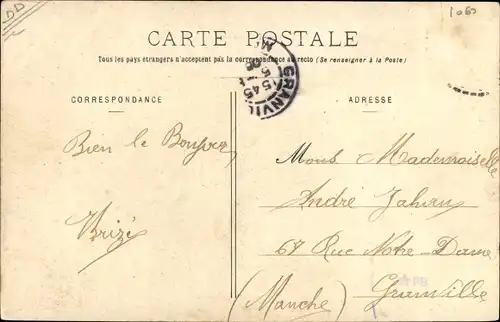 1060
CARTE POSTALE
Tous les pays étrangers n'acceptent pas la correspondance au recto (Se renseigner à la Poste)
GRANVIL
5 45
CORRESPONDANCE
ADRESSE
Bien le Bonjour
Brizé
Mons Mademoiselle
André Jahan
67 Rue Notre-Dame
Granville
(Manche)
PB